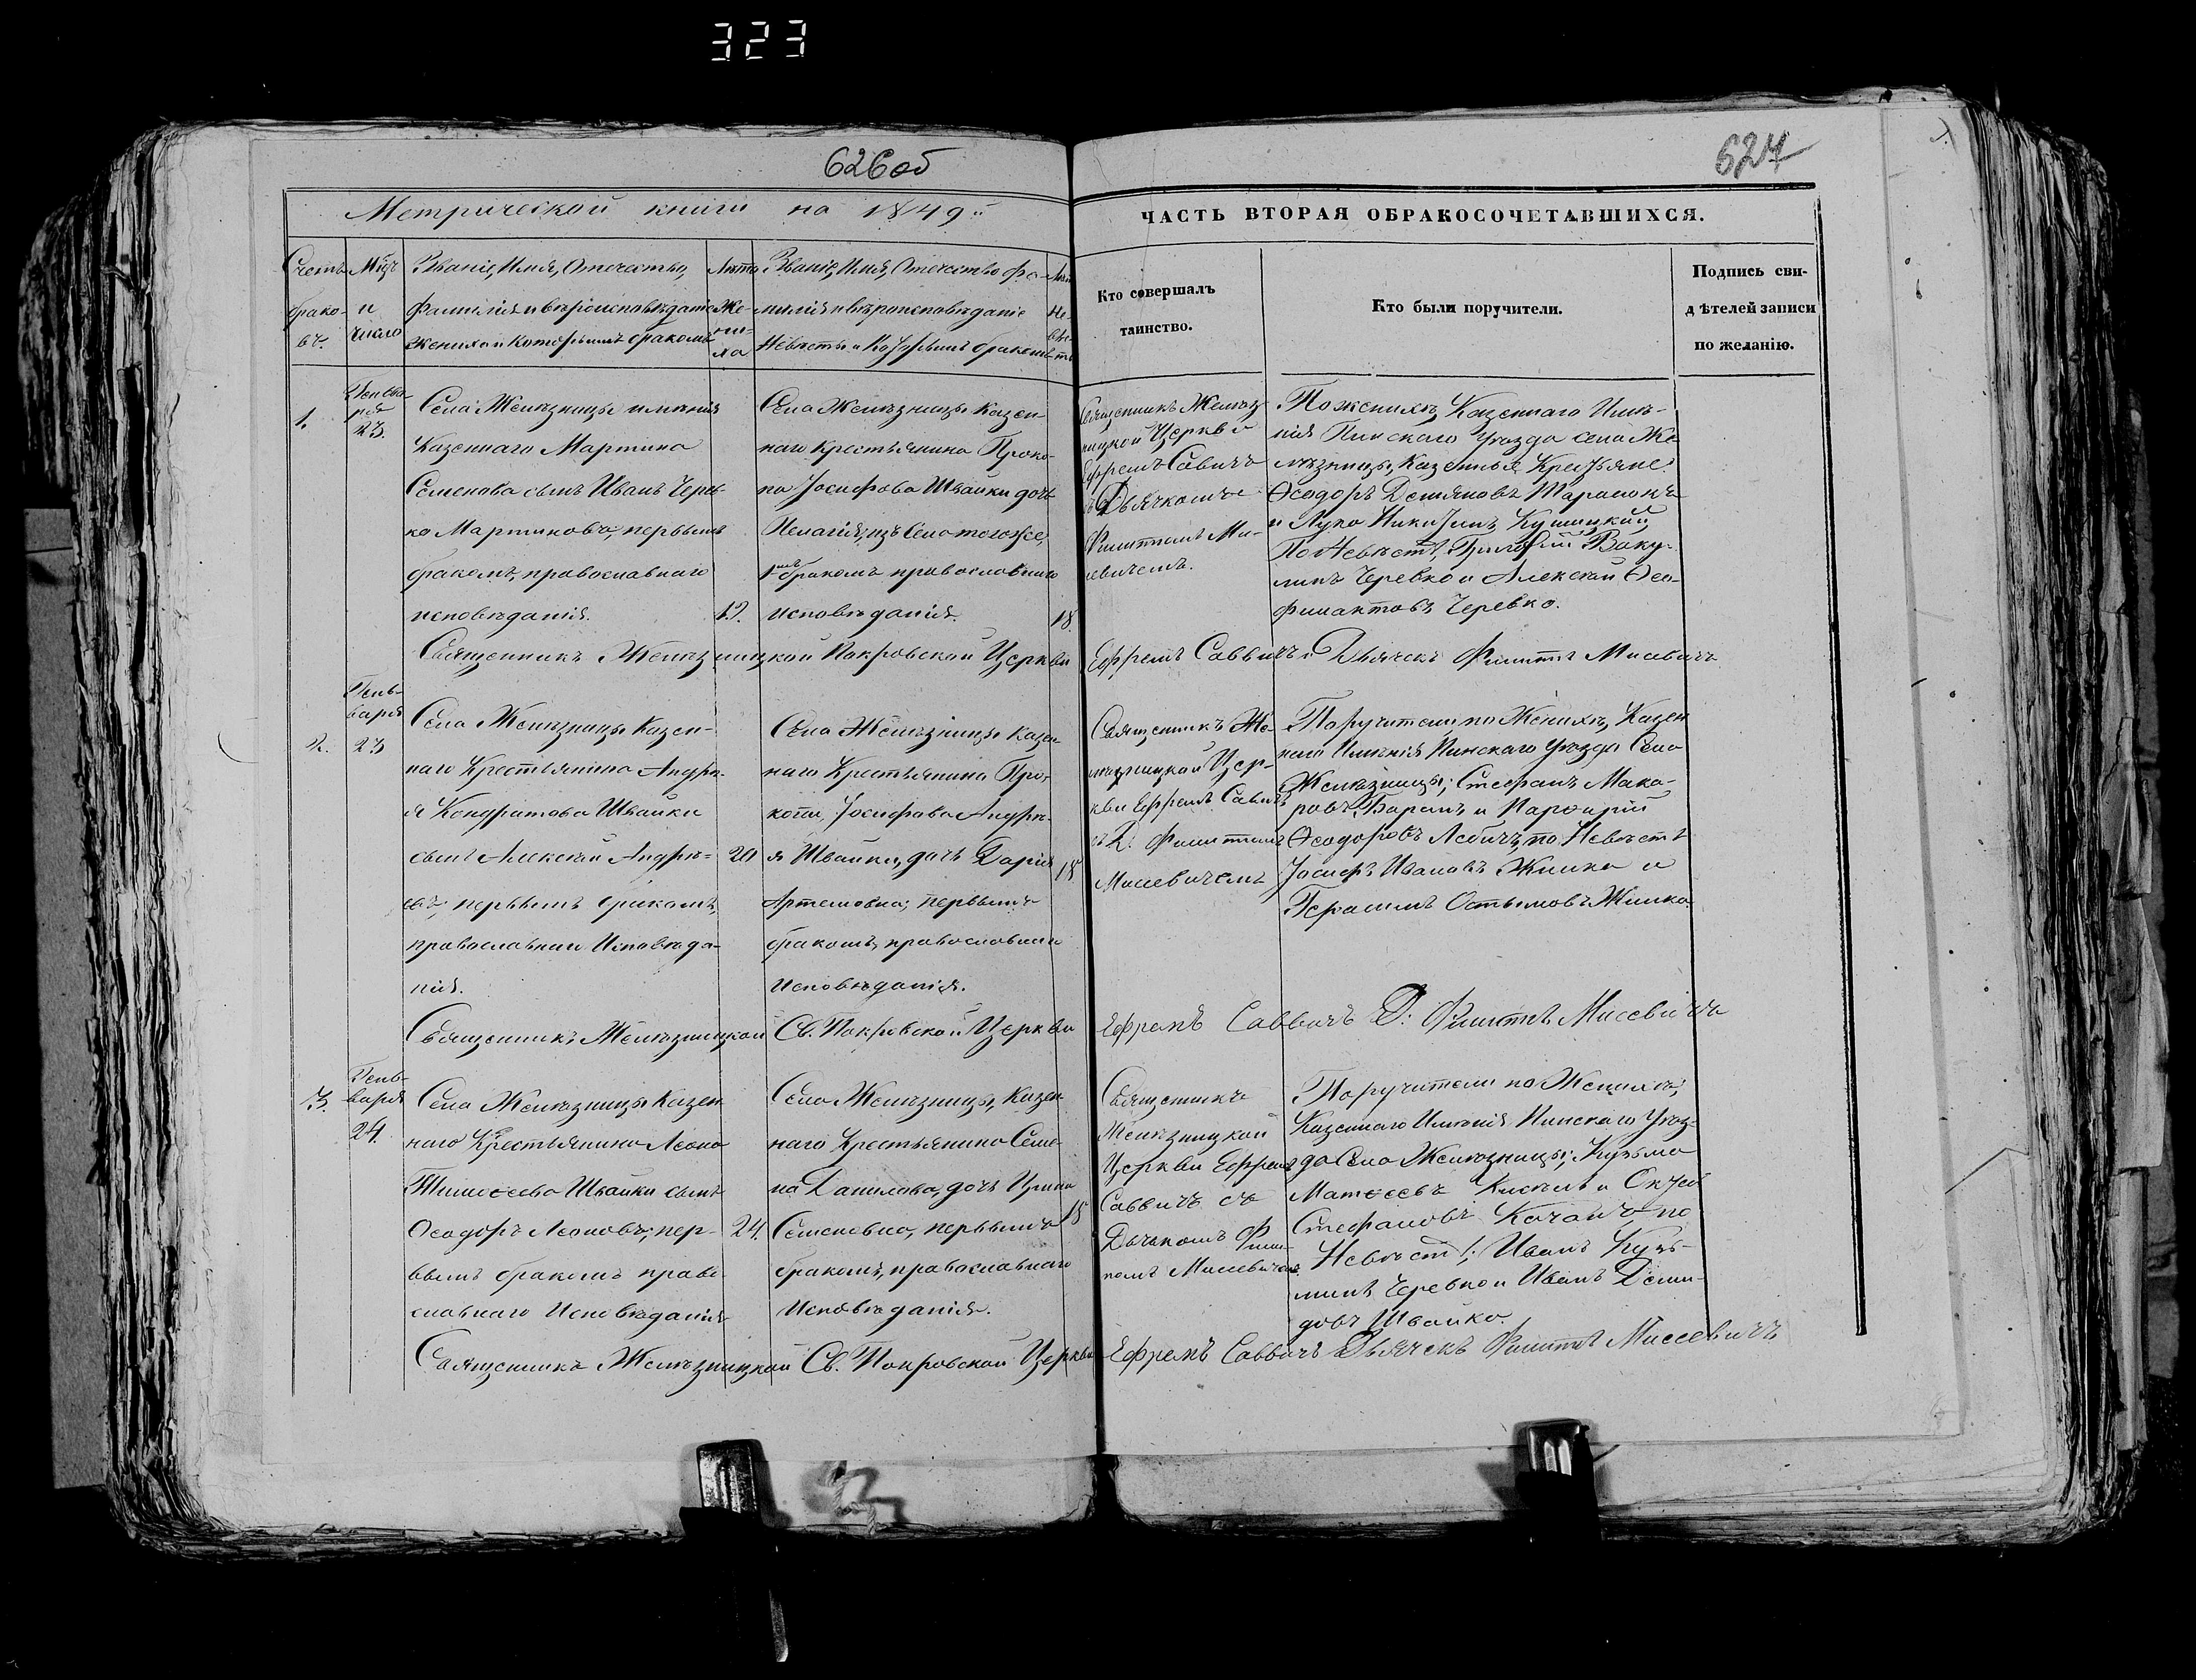 323
626об
627
Метрической книги на 1849й
ЧАСТЬ ВТОРАЯ О БРАКОСОЧЕТАВШИХСЯ.
Счетъ
брако-
въ.
Мѣць
и
число
Званіе, Имя, Отечество,
Фамилія и вѣроисповѣданіе
жениха и которымъ бракомъ
Лѣта
Же-
ни-
ха
Званіе, Имя, Отечество фа-
милія и вѣроисповѣданіе
Невѣсты и которымъ бракомъ
Лѣта
Не-
вѣ-
сты
Кто совершалъ
таинство.
Кто были поручители.
Подпись сви-
дѣтелей записи
по желанію.
1.
Генва-
ря
23.
Села Желѣзницы имѣнія
Казеннаго Мартина
Семенова сынъ Иванъ Черев-
ко Мартиновъ, первымъ
бракомъ, православнаго
исповѣданія.
19.
Села Желѣзницы Казен-
наго крестьянина Проко-
па Іосифова Швайки дочь
Пелагія, изъ Села тогоже,
1мъ бракомъ православнаго
исповѣданія.
18.
Священникъ Желѣз-
ницкой Церкви
Ефремъ Савичъ
съ Дьячкомъ
Филиппомъ Ми-
севичемъ.
По женихѣ, Казеннаго Имѣ-
нія Пинскаго уѣзда села Же-
лѣзницы, Казенные Крестьяне:
Ѳеодоръ Демяновъ
и Лука Никитинъ
По Невѣстѣ, Ваку-
линъ Черевко и Алексѣй Ѳео-
филактовъ Черевко.
Священникъ Желѣзницкой Покровской Церкви Ефремъ Саввичъ Дьячекъ Филиппъ Мисевичъ
2.
Генв-
варя
23
Села Желѣзницы Казен-
наго Крестьянина Андре-
я Кондратова Швайки
сынъ Алексѣй Андрѣ-
евъ, первымъ бракомъ,
православнаго Исповѣда-
нія.
20
Села Желѣзницы Казен-
наго Крестьянина Про-
копа, Іосифова Андрѣ-
я Швайки, дочь Дарія
Артемовна; первымъ
бракомъ, православнаго
Исповѣданія.
18
Священникъ Же-
лѣзницкой Цер-
кви Ефремъ Савичъ
съ Д. Филиппомъ
Мисевичемъ
Поручители, по Женихѣ, Казен-
наго Имѣнія Пинскаго уѣзда Села
Желѣзницы; Стефанъ Мака-
ровъ Баранъ и Парфирій
Ѳеодоровъ Лебичъ, по Невѣстѣ
Іосифъ Ивановъ Жилка и
Герасимъ Жилка
Священникъ Желѣзницкой Св. Покровской Церкви Ефремъ Саввичъ Д: Филиппъ Мисевичъ
3.
Генв-
варя
24.
Села Желѣзницы Казен-
наго Крестьянина Леона
Тимоѳеева Швайки сынъ
Ѳеодоръ Леоновъ; пер-
вымъ бракомъ право-
славнаго Исповѣданія
24.
Села Желѣзницы, Казен-
наго Крестьянина Семе-
на Данилова, дочь Ирина
Семеновна, первымъ
бракомъ, православнаго
Исповѣданія.
18
Священникъ
Желѣзницкой
Церкви Ефремъ
Саввичъ съ
Дьячкомъ Фили-
помъ Мисевичемъ
Поручители по Женихѣ;
Казеннаго Имѣнія Пинскаго Уѣз-
да Села Желѣзницы; Кузьма
Матѳеевъ и
Стефановъ Качанъ, по
Невѣстѣ; Иванъ Кузь-
минъ Черевко и Иванъ Деми-
довъ Швайко.
Священникъ Желѣзницкой Св. Покровской Церкви Ефремъ Саввичъ Дьячекъ Филиппъ Мисевичъ